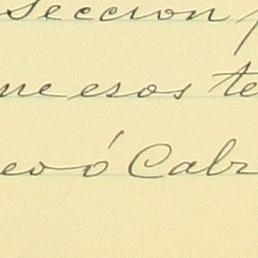 Seccion
me esos te
eo ó Cabr